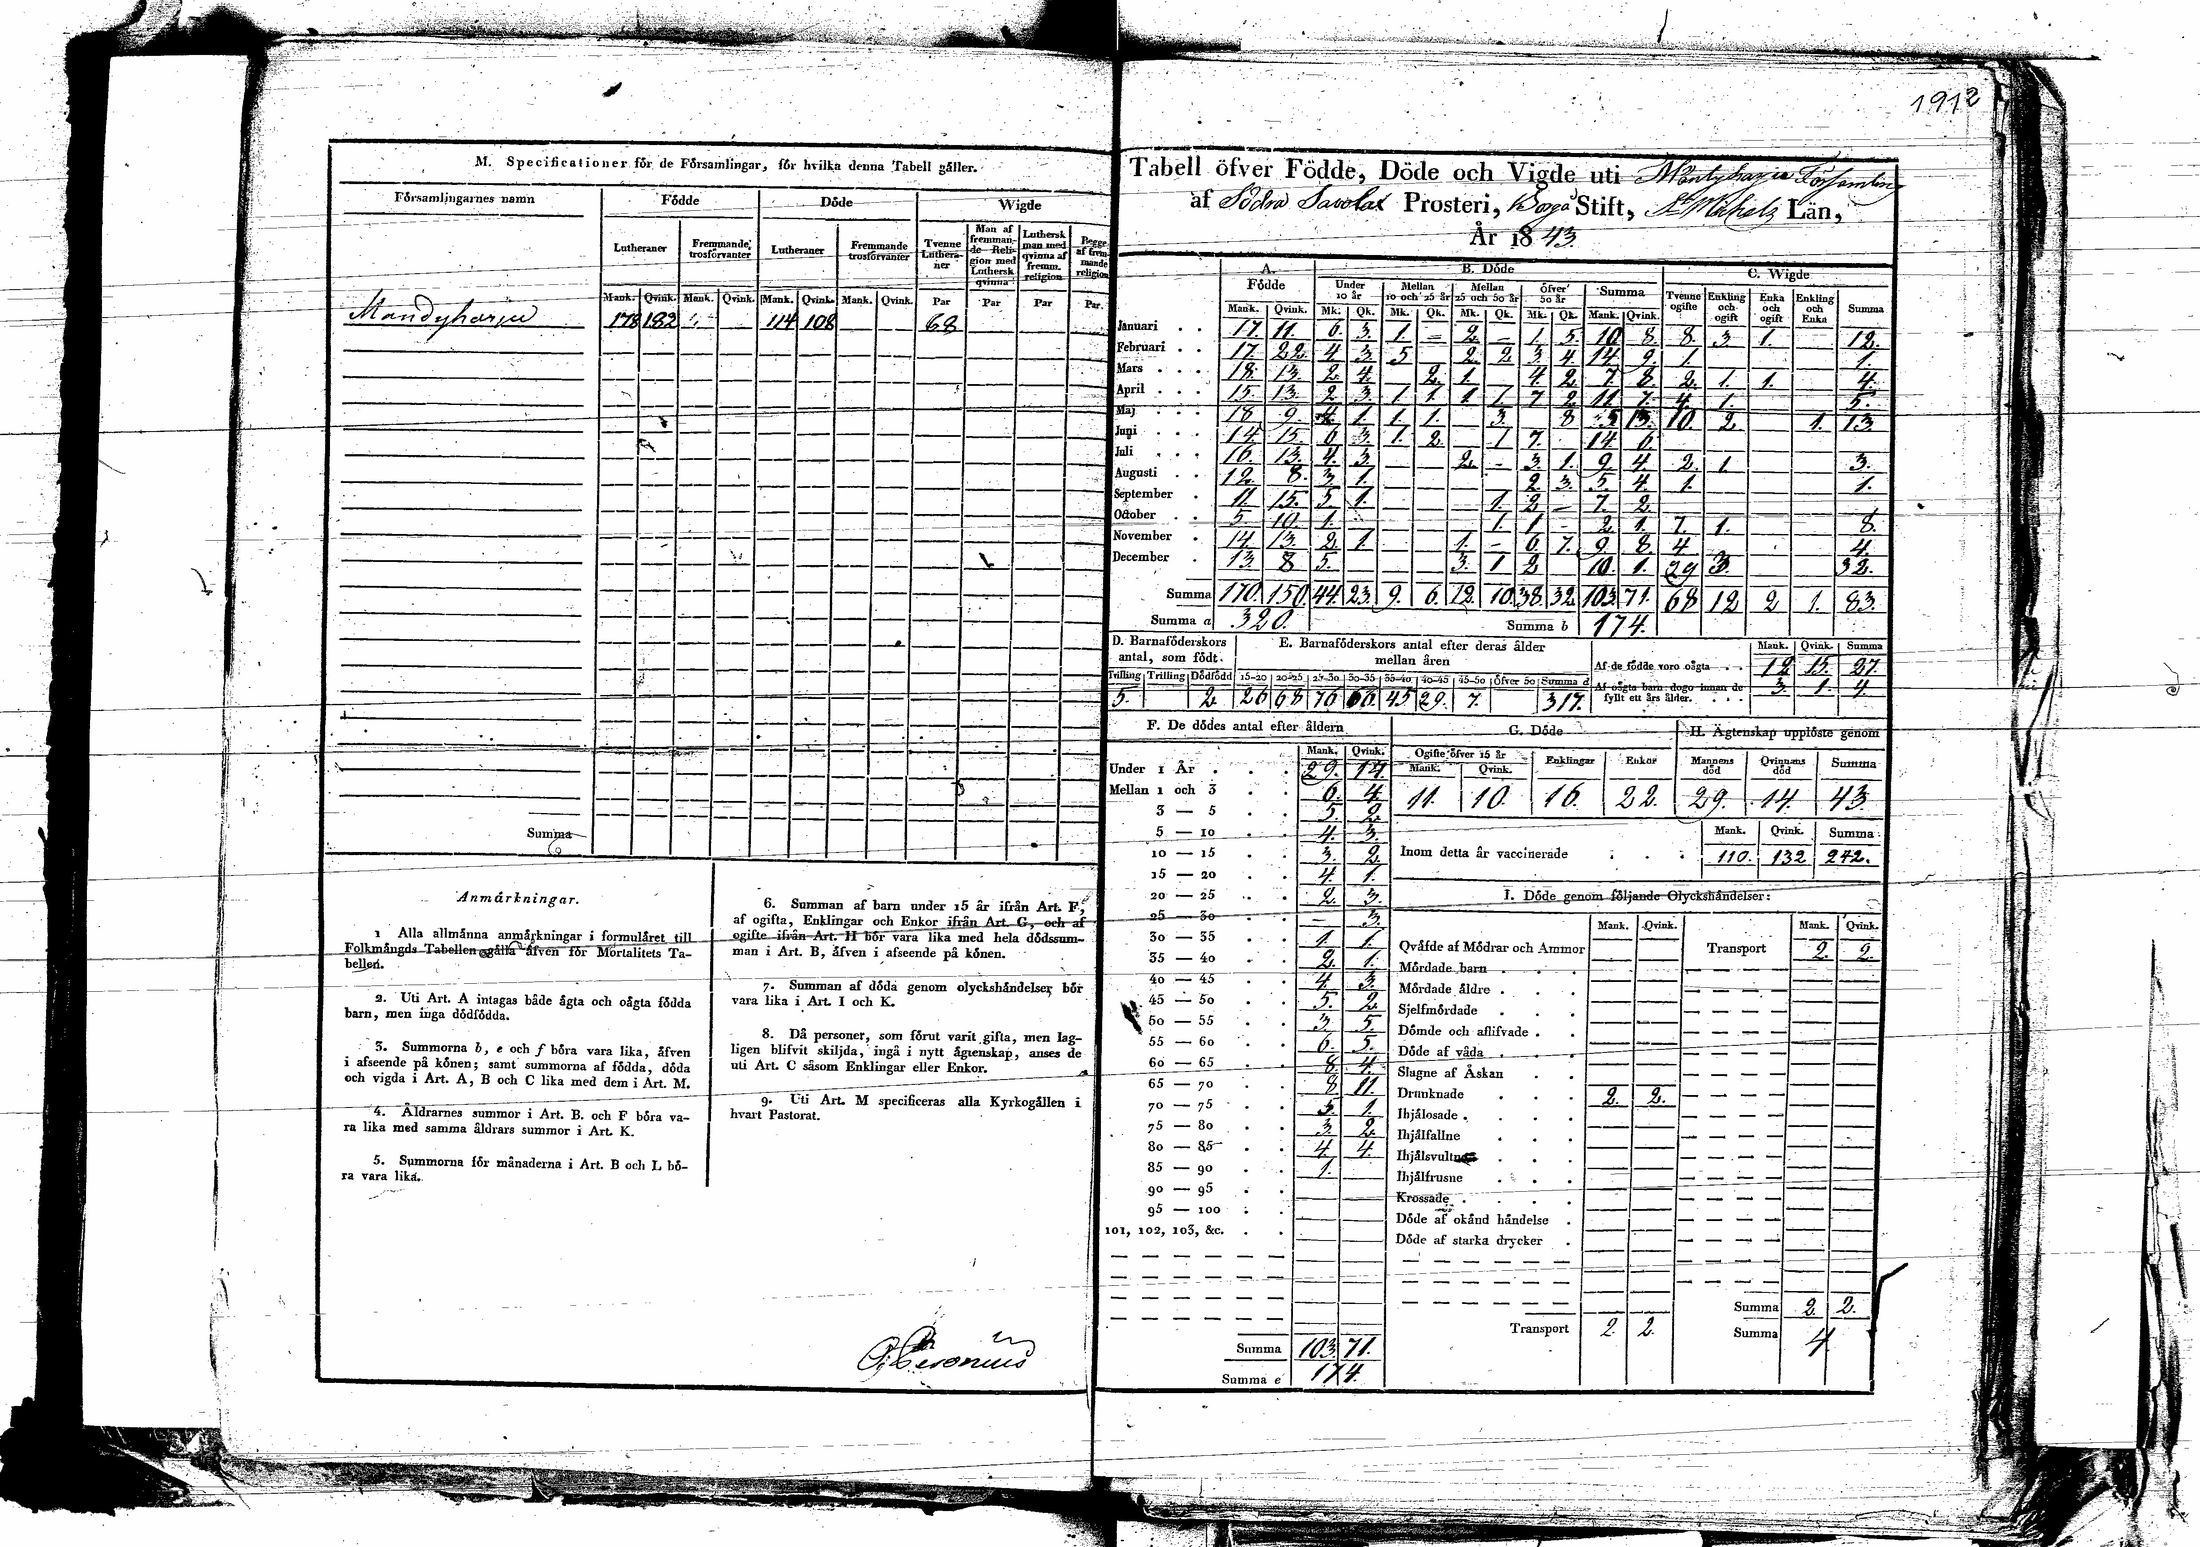 1912
M. Specificationer för de Församlingar, för hvilka denna Tabell gäller.
Församlingarnes namn Födde Döde Wigde
Lutheraner Fremmande trosförvanter Lutheraner Fremmande trosförvanter Tvenne Lutheraner Man af fremmande Religion med Luthersk qvinna Luthersk man med qvinna af fremm. religion Begge af fremmande religion
Mank. Qvink. Mank. Qvink. Mank. Qvink. Mank. Qvink. Par Par Par Par.
Mandyharju 178 182 114 108 68
Summa
Anmärkningar.
1 Alla allmänna anmärkningar i formuläret till
Folkmängds Tabellen gälla äfven för Mortalitets Ta-
bellen.
2. Uti Art. A intagas både ägta och oägta födda
barn, men inga dödfödda.
3. Summorna b, e och f böra vara lika, äfven
i afseende på könen; samt summorna af födda, döda
och vigda i Art. A, B och C lika med dem i Art. M.
4. Åldrarnes summor i Art. B. och F böra va-
ra lika med samma åldrars summor i Art. K.
5. Summorna för månaderna i Art. B och L bö-
ra vara lika.
6. Summan af barn under 15 år ifrån Art. F,
af ogifta, Enklingar och Enkor ifrån Art. G, och af
ogifte ifrån Art. H bör vara lika med hela dödssum-
man i Art. B, äfven i afseende på könen.
7. Summan af döda genom olyckshändelser bör
vara lika i Art. I och K.
8. Då personer, som förut varit gifta, men lag-
ligen blifvit skiljda, ingå i nytt ägtenskap, anses de
uti Art. C såsom Enklingar eller Enkor.
9. Uti Art. M specificeras alla Kyrkogällen i
hvart Pastorat.
Tabell öfver Födde, Döde och Vigde uti Mäntyharju Församling
af Södra Savolax Prosteri, Borgå Stift, St Michels Län,
År 1843.
A. Födde B. Döde C. Wigde
Under 10 år Mellan 10 och 25 år Mellan 25 och 50 år Öfver 50 år Summa Tvenne ogifte Enkling och ogift Enka och ogift Enkling och Enka Summa
Mank. Qvink. Mk. Qk. Mk. Qk. Mk. Qk. Mk. Qk. Mank. Qvink.
Januari 17. 11. 6. 3. 1. – 2. – 1. 5. 10. 8. 8. 3. 1. 12.
Februari 17. 22. 4. 3. 5 2. 2. 3. 4. 14. 9. 1. 1.
Mars 18. 13. 2. 4. 2. 1. 4. 2. 7. 8. 2. 1. 1. 4.
April 15. 13. 2. 3. 1 1. 1 1. 7 2. 11. 7. 4. 1. 5.
Maj 18 9. 4. 1. 1. 1. 3. 8 5 13. 10. 2. 1. 13.
Juni 14. 15. 6. 3. 1. 2. 1 7. 14. 6.
Juli 16. 13. 4. 3. 2. – 3. 1. 9. 4. 2. 1 3.
Augusti 12. 8. 3. 1. 2. 3. 5. 4. 1. 1.
September 11. 15. 5 1. 1. 2. – 7. 2.
October 5. 10. 1. 1. 1 – 2. 1. 7. 1. 8.
November 14. 13. 2. 1. 1. – 6. 7. 9. 8. 4 4.
December 13. 8 5. 3. 1 2 10. 1. 29 3. 32.
Summa 170. 150. 44. 23. 9. 6. 12. 10. 38. 32. 103. 71. 68 12 2 1. 83.
Summa a 320. Summa b 174.
D. Barnaföderskors antal, som födt. E. Barnaföderskors antal efter deras ålder mellan åren
Tvilling Trilling Dödfödd 15–20 20–25 25–30 30–35 35–40 40–45 45–50 Öfver 50 Summa d
5. 2. 26 68 76 66. 45 29. 7. 317.
Mank. Qvink. Summa
Af de födde voro oägta 12 15. 27.
Af oägta barn dogo innan de fyllt ett års ålder. 3. 1. 4.
F. De dödes antal efter åldern
Mank. Qvink.
Under 1 År 29. 14.
Mellan 1 och 3 6. 4.
3 — 5 5 2.
5 — 10 4. 3.
10 — 15 3. 2.
15 — 20 4. 1.
20 — 25 2. 3.
25 — 30 – 3.
30 — 35 1. 1.
35 — 40 2. 1.
40 — 45 4. 3.
45 — 50 5. 2.
50 — 55 3. 5.
55 — 60 6. 5.
60 — 65 8. 4.
65 — 70 8 11.
70 — 75 5. 1.
75 — 80 3. 2.
80 — 85 4. 4.
85 — 90 1.
90 — 95
95 — 100
101, 102, 103, &c.
Summa 103. 71.
Summa e 174.
G. Döde
Ogifte öfver 15 år Enklingar Enkor
Mank. Qvink.
11. 10. 16. 22.
H. Ägtenskap upplöste genom
Mannens död Qvinnans död Summa
29. 14. 43.
Mank. Qvink. Summa
Inom detta år vaccinerade 110. 132 242.
I. Döde genom följande Olyckshändelser:
Mank. Qvink. Mank. Qvink.
Qväfde af Mödrar och Ammor Transport 2. 2.
Mördade barn
Mördade äldre
Sjelfmördade
Dömde och aflifvade
Döde af våda
Slagne af Åskan
Drunknade 2. 2.
Ihjälosade
Ihjälfallne
Ihjälsvultne
Ihjälfrusne
Krossade
Döde af okänd händelse
Döde af starka drycker
Summa 2. 2.
Transport 2. 2. Summa 4